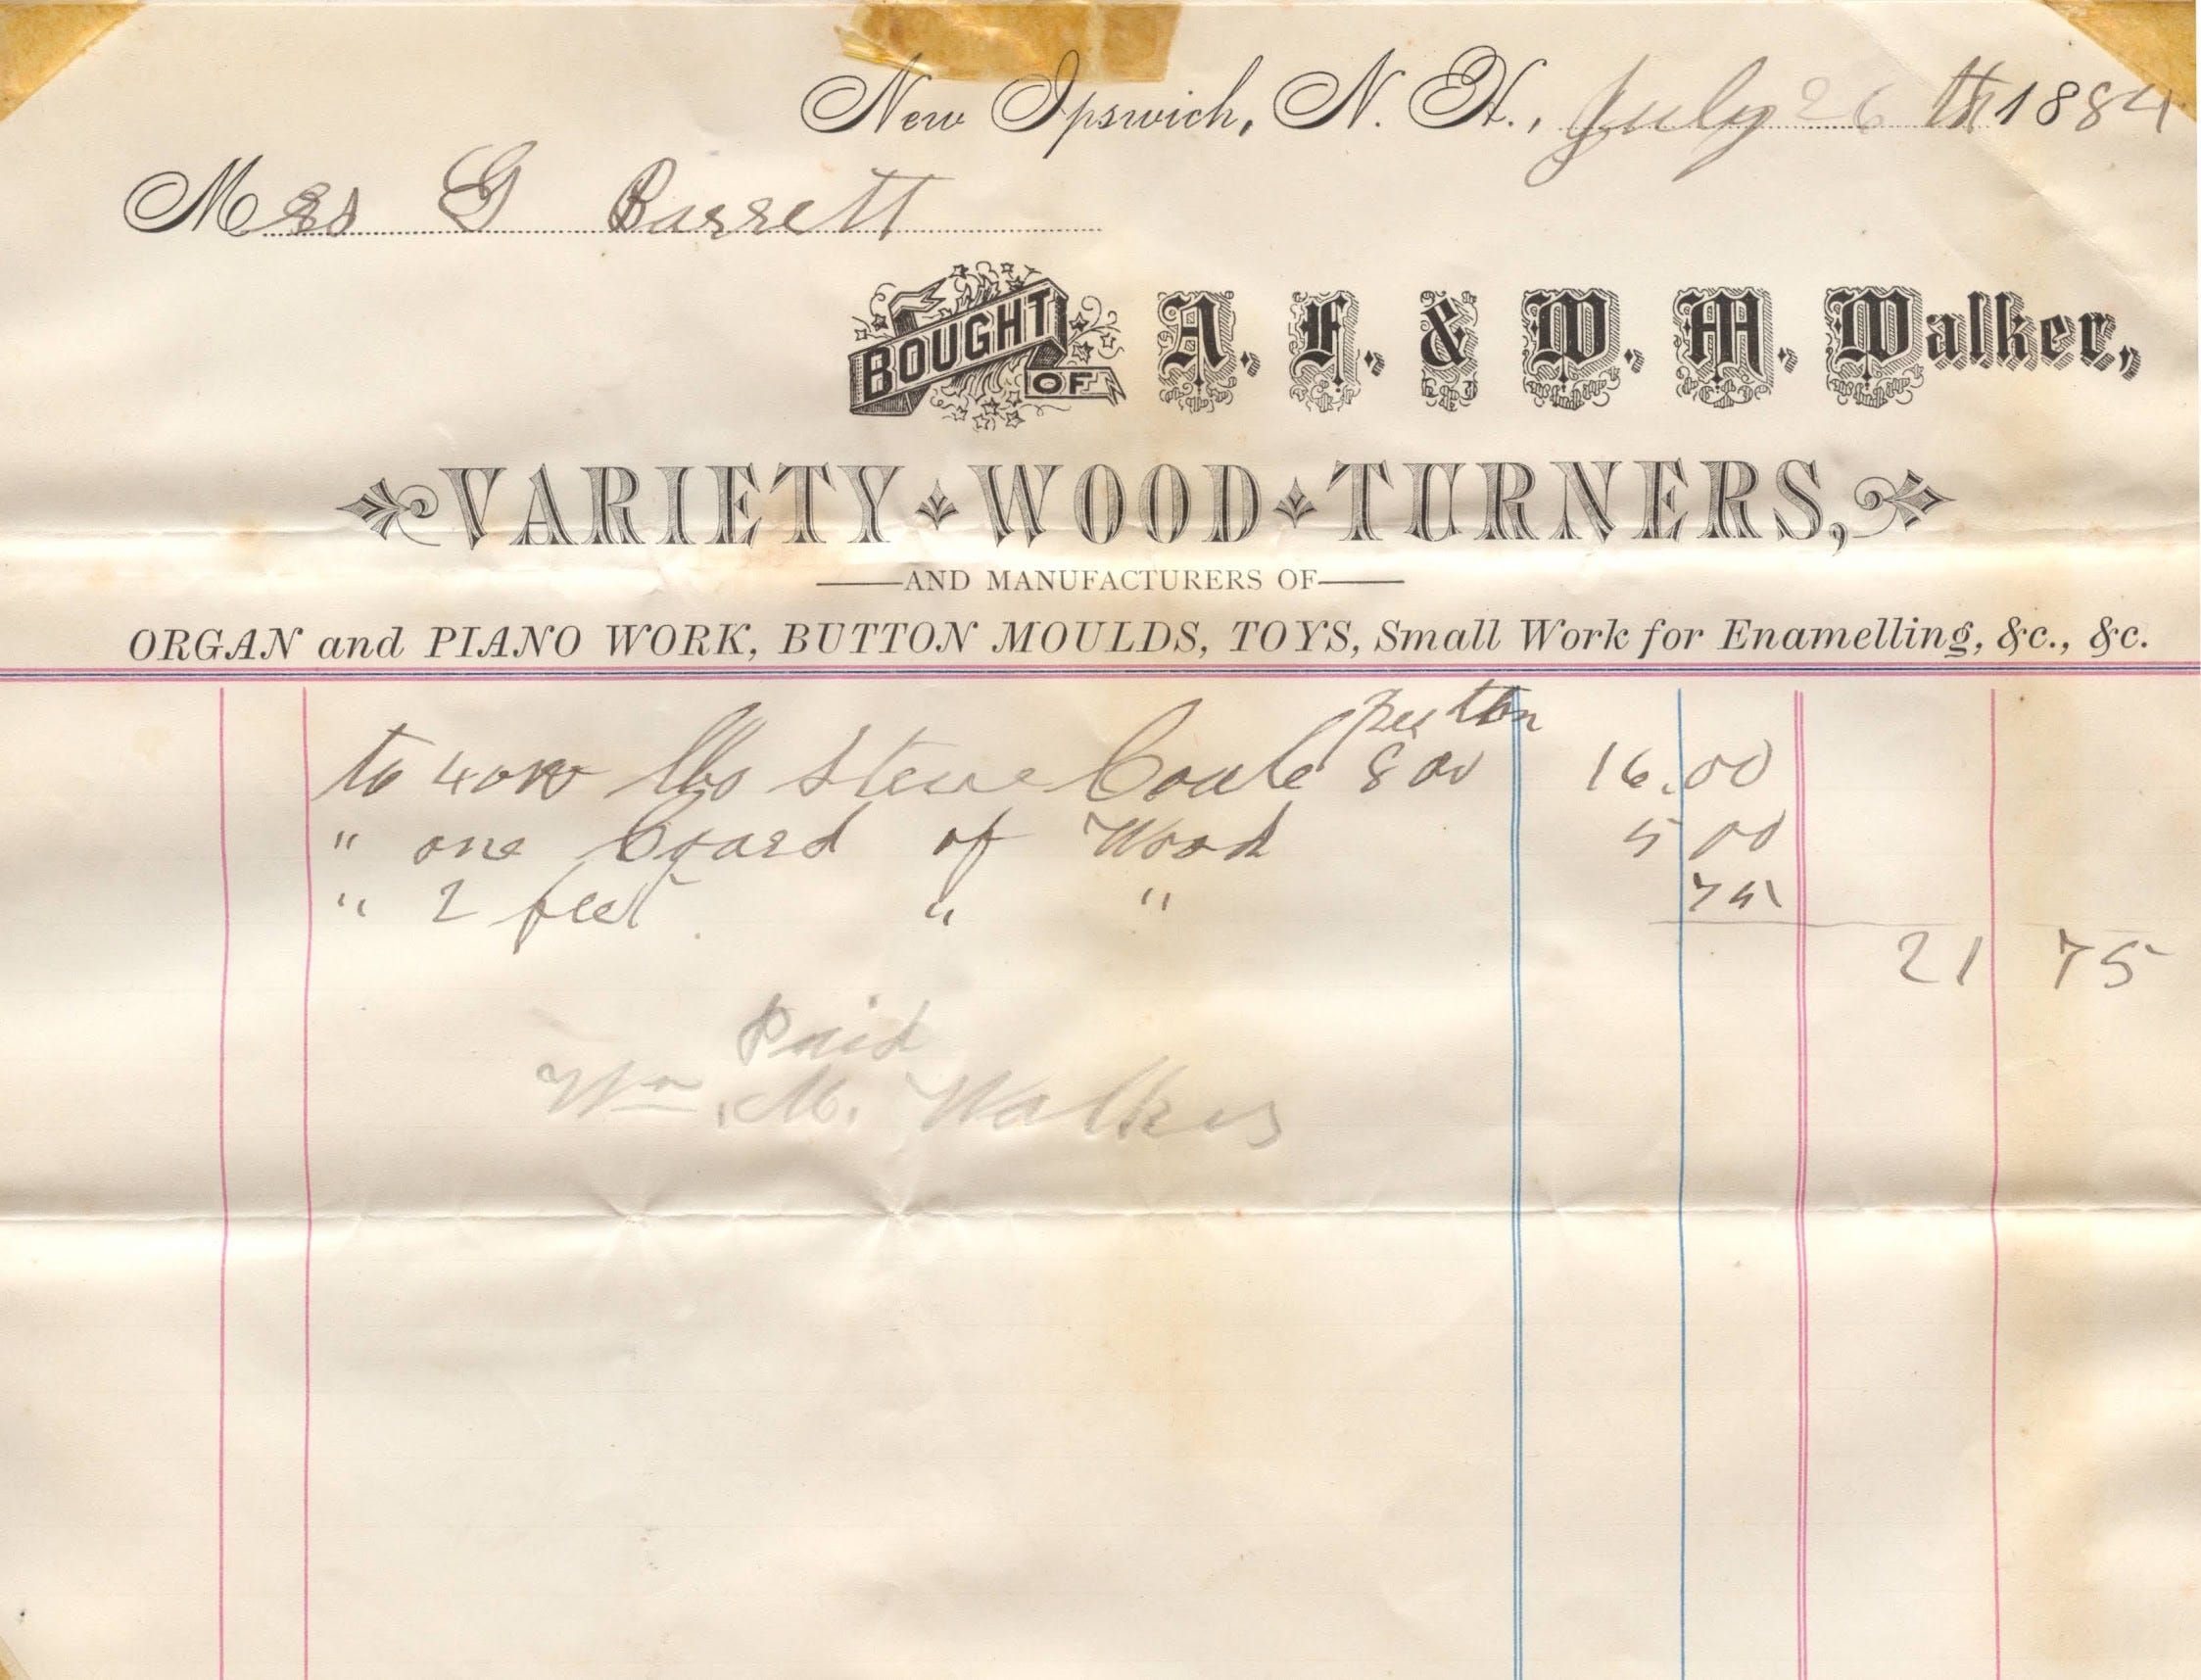 New Ipswich, N. H., July 26 th 1884
Mrs G Barrett
BOUGHT OF A. F. & W. M. Walker,
VARIETY WOOD TURNERS,
AND MANUFACTURERS OF
ORGAN and PIANO WORK, BUTTON MOULDS, TOYS, Small Work for Enamelling, &c., &c.
per ton
to 4000 lbs Stove Coale 8 00 16.00
" one Coard of Wood 5 00
" 2 feet " " 75
21 75
Paid
Wm. M. Walker